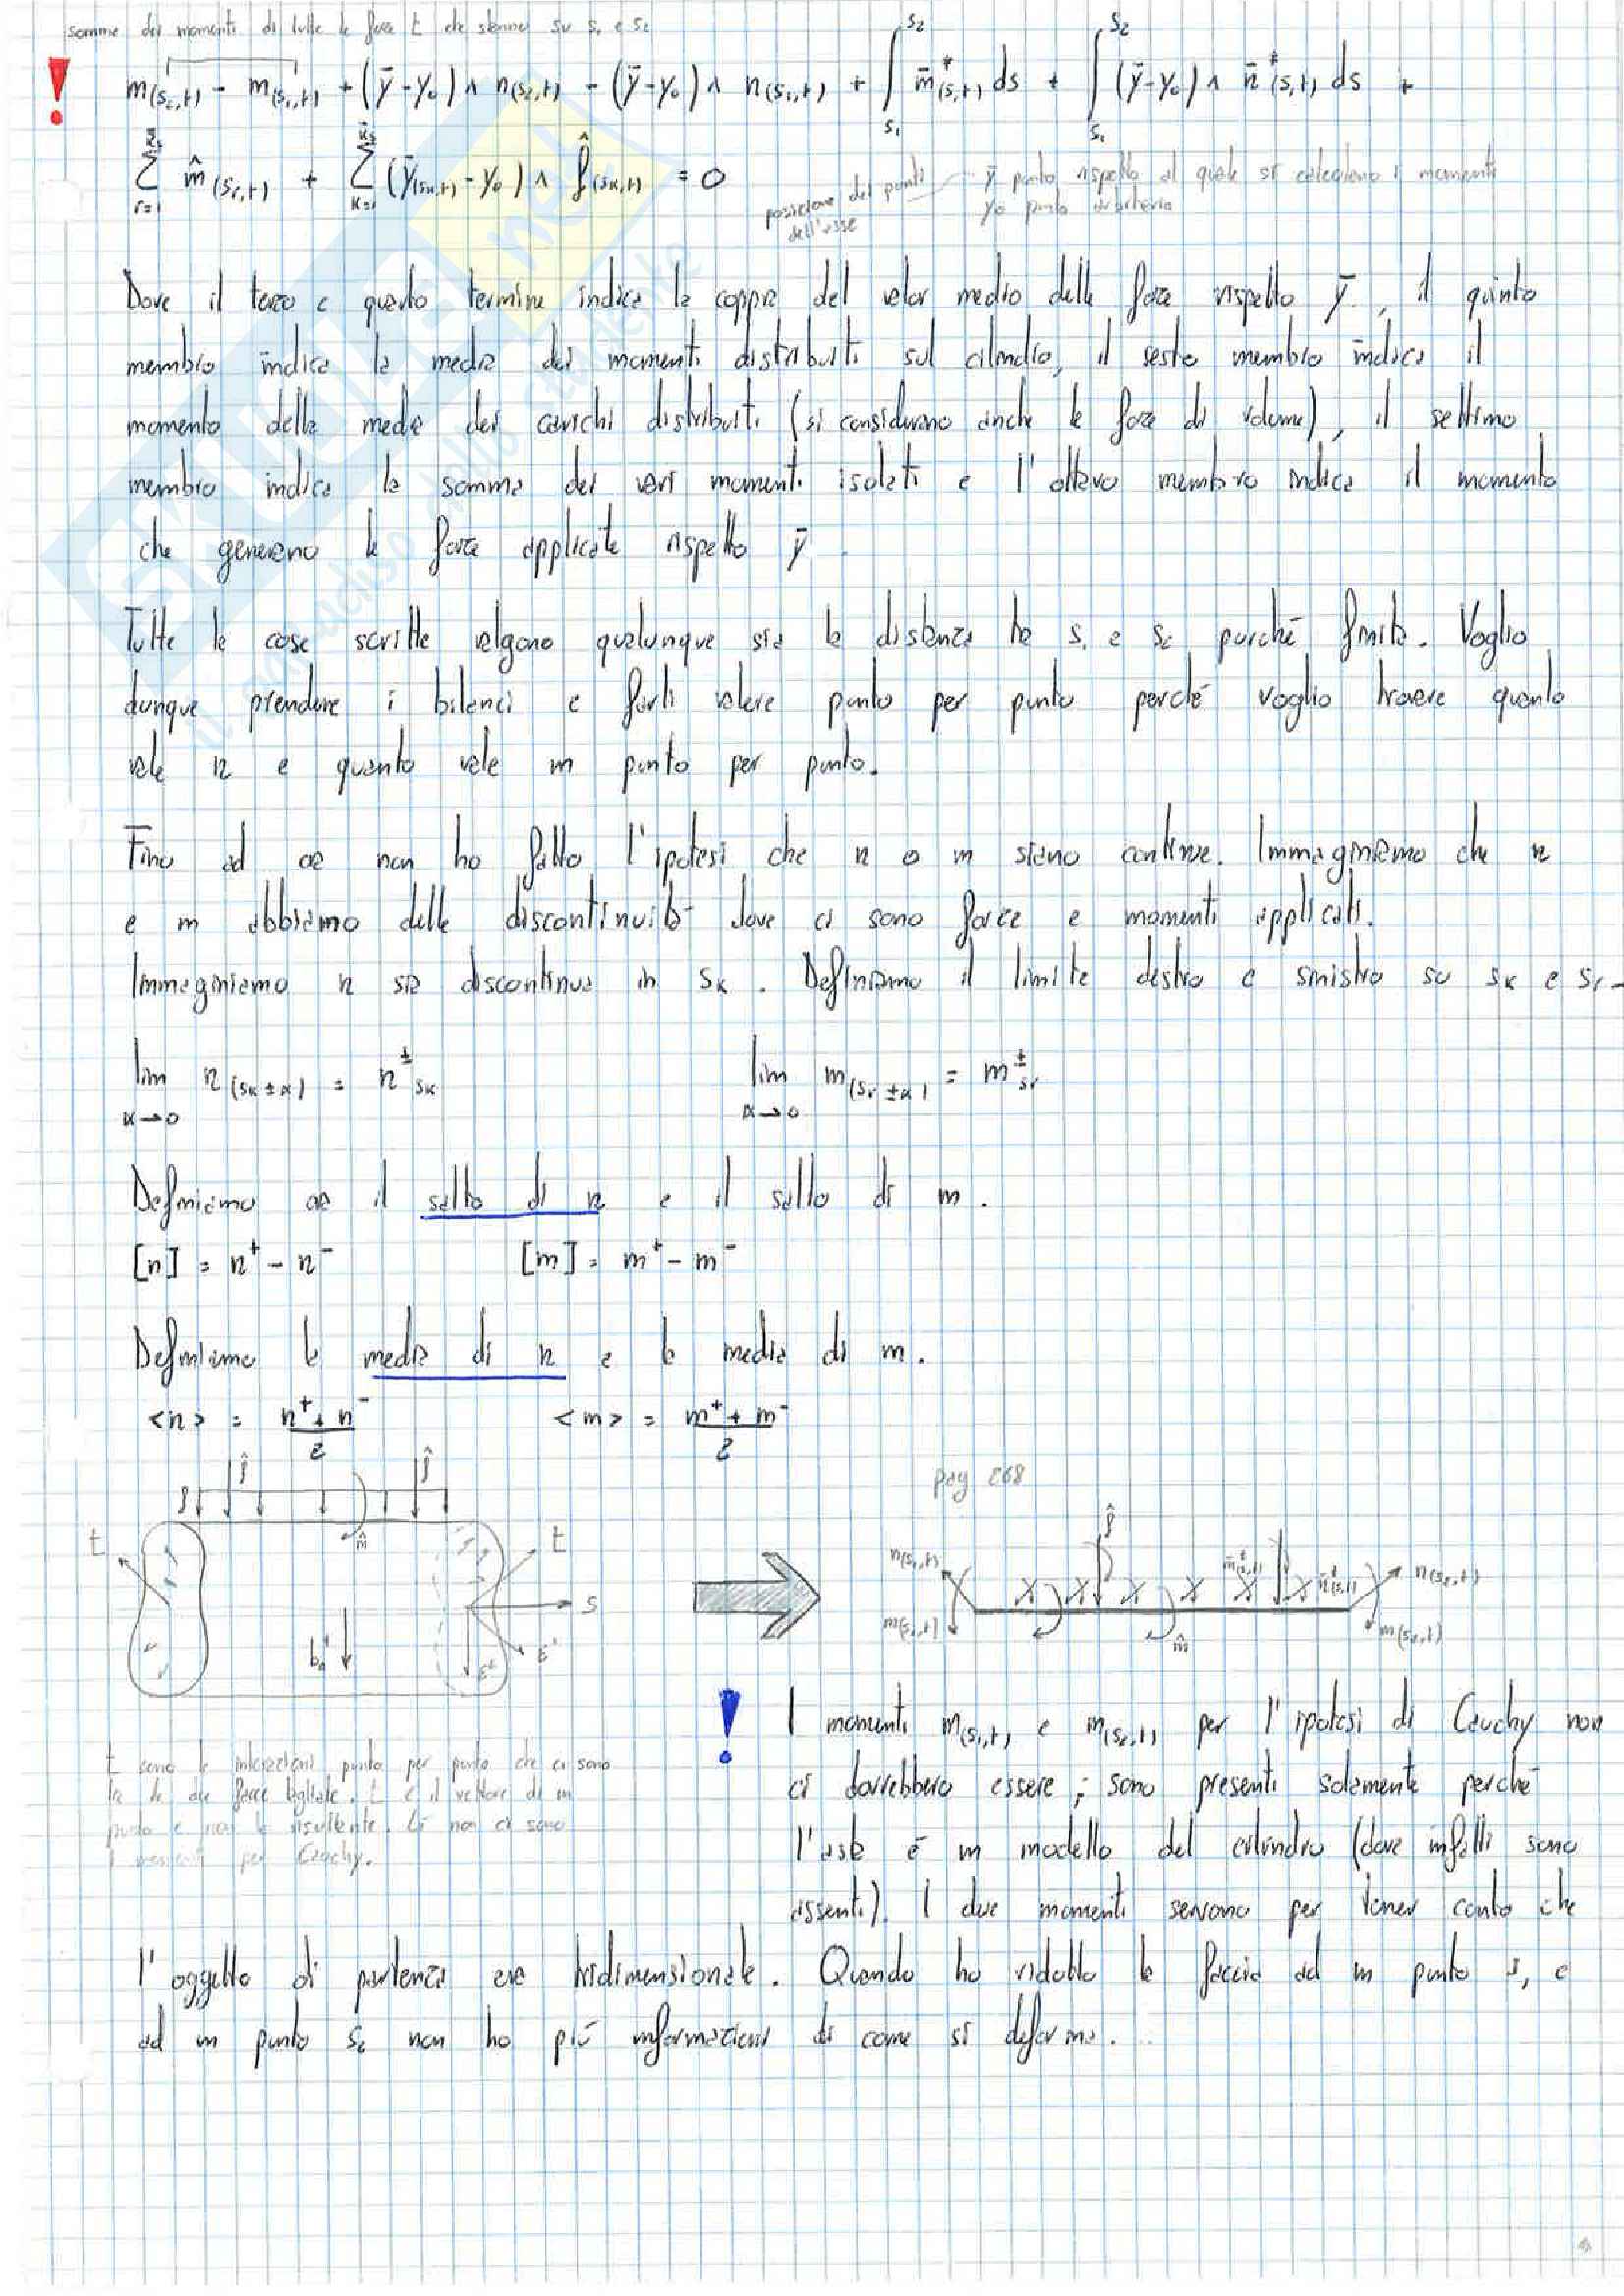 somma dei momenti di tutte le forze t che stanno su s₁ e s₂
! m(s₂,t) - m(s₁,t) + (ȳ-y₀) ∧ n(s₂,t) - (ȳ-y₀) ∧ n(s₁,t) + ∫ₛ₁^s₂ m̄*(s,t) ds + ∫ₛ₁^s₂ (ȳ-y₀) ∧ n̄*(s,t) ds +
Σ r=1 m̂(sr,t) + Σ k=1 (ȳ(sk,t) - y₀) ∧ f̂(sk,t) = 0
posizione dei punti dell'asse
ȳ punto rispetto al quale si calcolano i momenti
y₀ punto arbitrario
Dove il terzo e quarto termine indica la coppia del valor medio delle forze rispetto ȳ, il quinto
membro indica la media dei momenti distribuiti sul cilindro, il sesto membro indica il
momento della media dei carichi distribuiti (si considerano anche le forze di volume), il settimo
membro indica la somma dei vari momenti isolati e l'ottavo membro indica il momento
che generano le forze applicate rispetto ȳ.
Tutte le cose scritte valgono qualunque sia la distanza tra s₁ e s₂ purché finita. Voglio
dunque prendere i bilanci e farli valere punto per punto perché voglio trovare quanto
vale n e quanto vale m punto per punto.
Fino ad ora non ho fatto l'ipotesi che n o m siano continue. Immaginiamo che n
e m abbiamo delle discontinuità dove ci sono forze e momenti applicati.
Immaginiamo n sia discontinua in sk. Definiamo il limite destro e sinistro su sk e sr.
lim α→0 n(sk±α) = n±sk lim α→0 m(sr±α) = m±sr
Definiamo ora il salto di n e il salto di m.
[n] = n⁺ - n⁻ [m] = m⁺ - m⁻
Definiamo la media di n e la media di m.
<n> = n⁺ + n⁻ / 2 <m> = m⁺ + m⁻ / 2
f̂ f̂ m̂ t t s b₀
pag 268
n(s₁,t) f̂ m̄*(s,t) n̄*(s,t) n(s₂,t)
m(s₁,t) m̂ m(s₂,t)
t sono le interazioni punto per punto che ci sono
tra le due facce tagliate. t è il vettore di un
punto e non la risultante. Lì non ci sono
i momenti per Cauchy.
! I momenti m(s₁,t) e m(s₂,t) per l'ipotesi di Cauchy non
ci dovrebbero essere; sono presenti solamente perché
l'asta è un modello del cilindro (dove infatti sono
assenti). I due momenti servono per tener conto che
l'oggetto di partenza era tridimensionale. Quando ho ridotto la faccia ad un punto s₁ e
ad un punto s₂ non ho più informazioni di come si deforma...